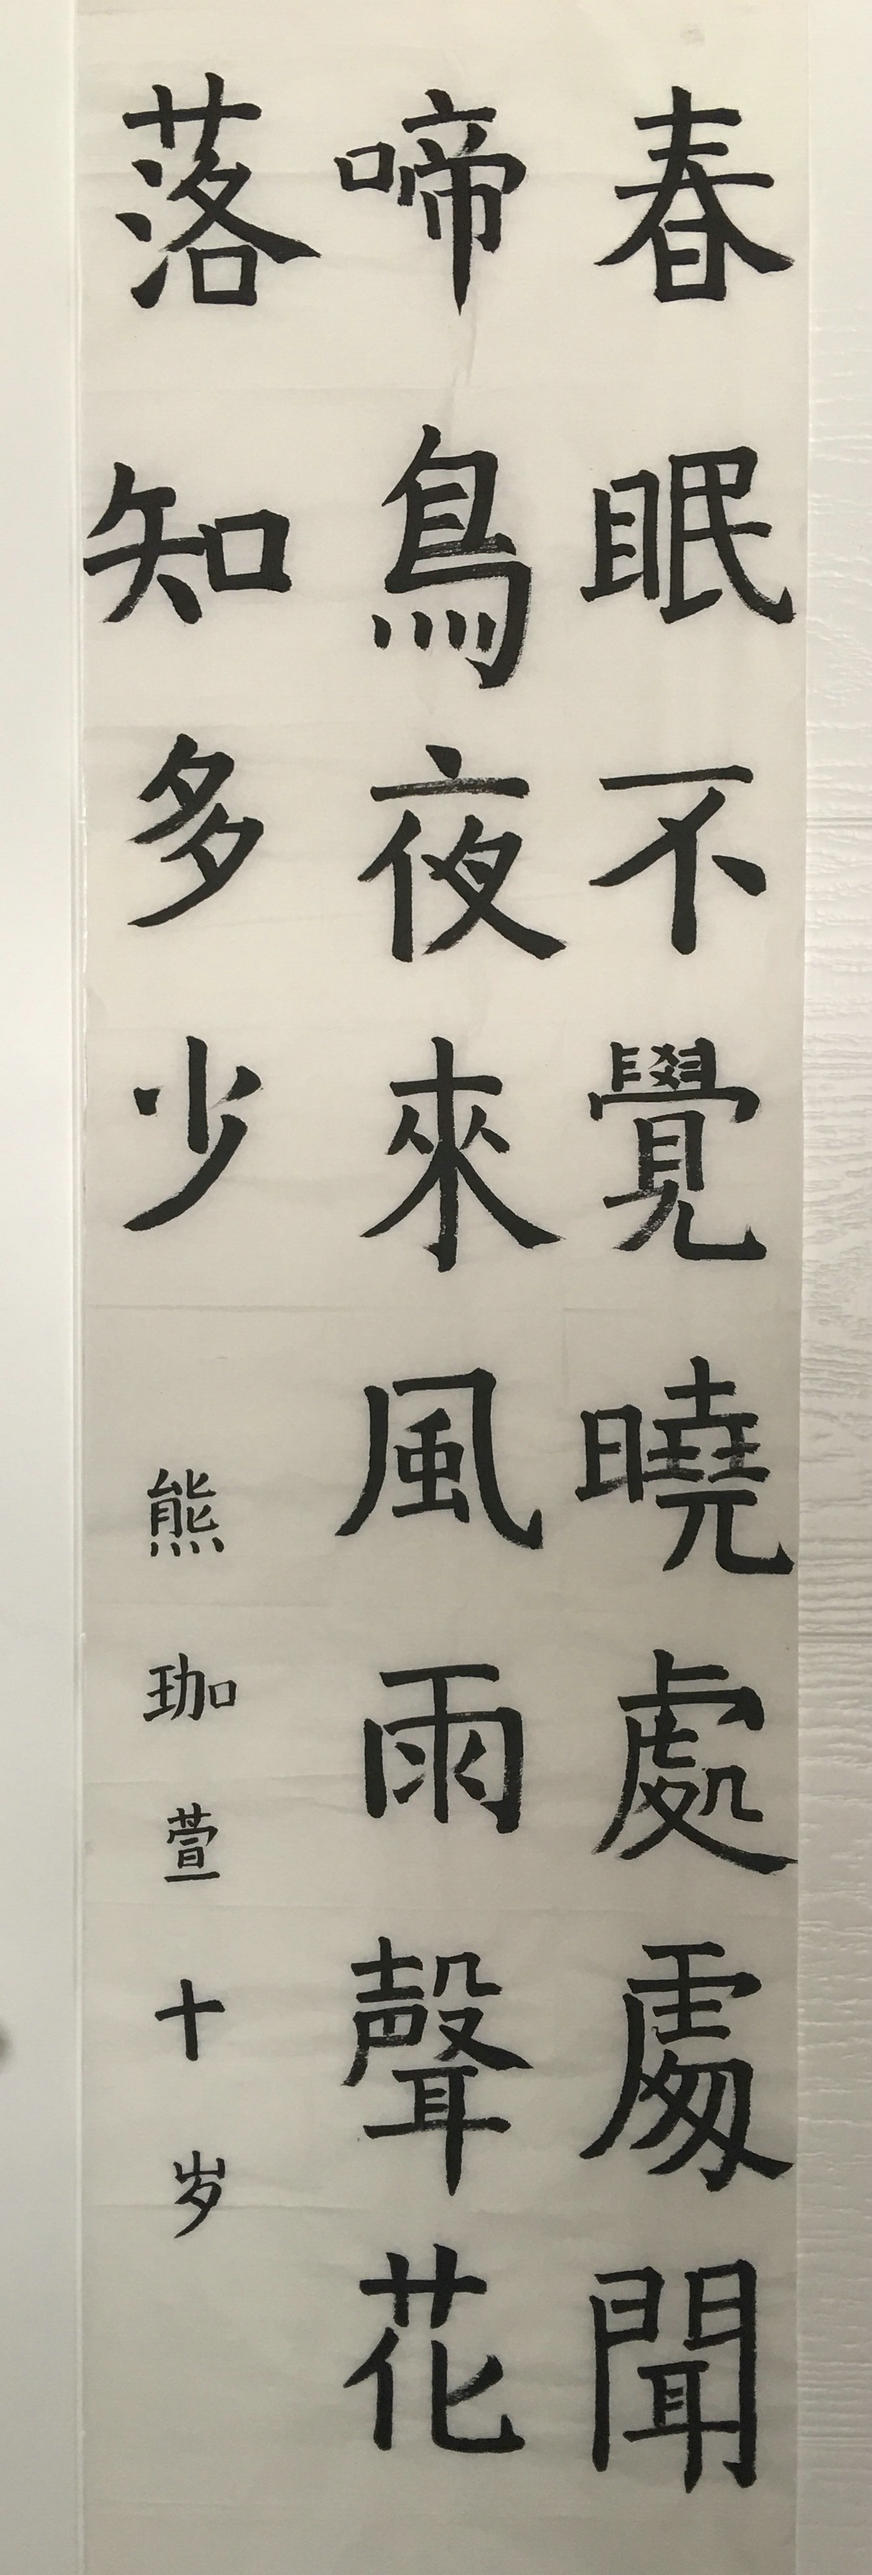 春眠不覺曉處處聞
啼鳥夜來風雨聲花
落知多少
熊珈萱十岁